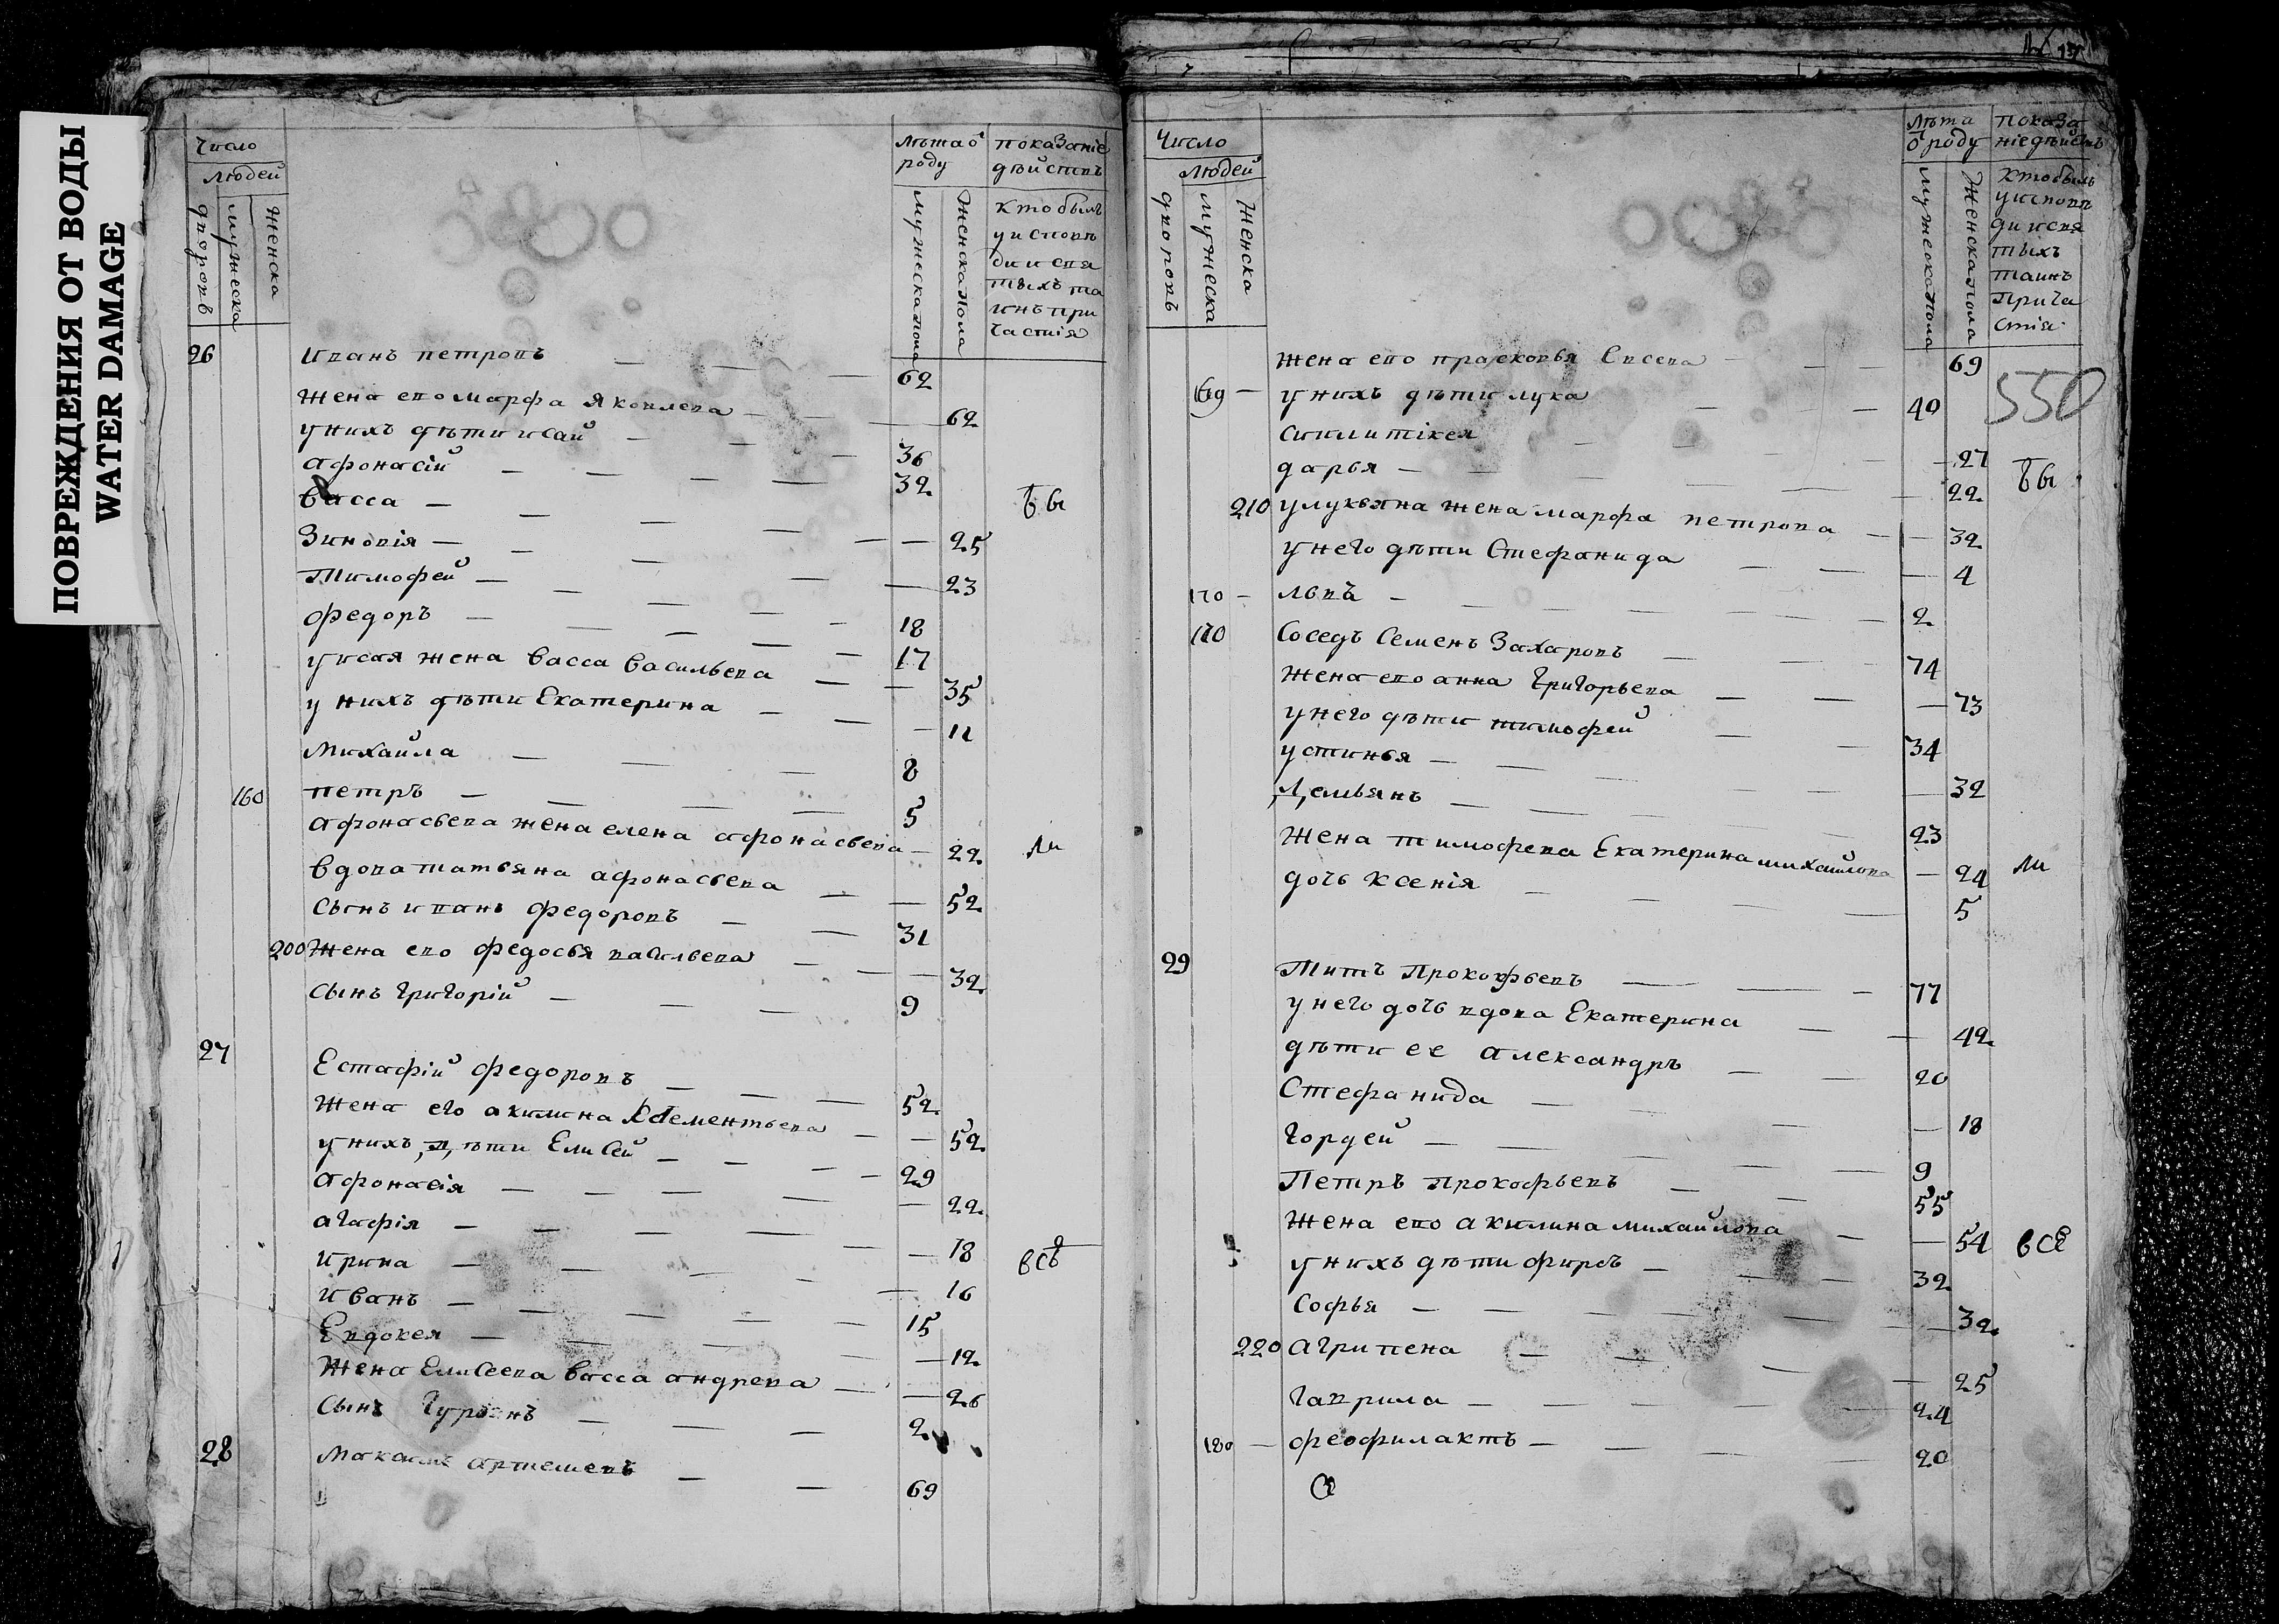 ПОВРЕЖДЕНИЯ ОТ ВОДЫ
WATER DAMAGE
Число
людей
дворовъ
мужеска
женска
лѣта ѿ роду
мужеска пола
женска пола
показаніе дѣйствъ
кто былъ
у исповѣ
ди и свя
тыхъ та
инъ при
частія
26 иванъ петровъ 62
жена ево марфа яковлева 62
у нихъ дѣти исай 36
афонасій 32
васса 25
Зиновія 23
Тимофей 18
федоръ 17
у исая жена васса васильева 35
у нихъ дѣти Екатерина 11
михайла 8
160 петръ 5
афонасьева жена елена афонасьева 22
вдова татьяна афонасьева 52
сынъ иванъ федоровъ 31
200 жена ево федосья васильева 32
сынъ григорій 9
бы
ли
27 Естафій федоровъ 52
жена его акилина клементьева 52
у нихъ дѣти Елисей 29
афонасія 22
агафія 18
ирина 16
иванъ 15
Евдокея 12
жена Елисеева васса андрева 26
сынъ гурьянъ 2
всѣ
28 артемевъ 69
Число
людей
дворовъ
мужеска
женска
лѣта
ѿ роду
мужеска пола
женска пола
показа
ніе дѣйствъ
кто былъ
у исповѣ
ди и свя
тыхъ
таинъ
прича
стія
550
жена ево прасковья Евсева 69
169 у нихъ дѣти лука 40
синклитікея 27
дарья 22
210 у лукьяна жена марфа петрова 32
у него дѣти Стефанида 4
170 львъ 2
170 Соседъ Семенъ Захаровъ 74
жена ево анна григорьева 73
у него дѣти тимофей 34
устинья 32
Демьянъ 23
жена тимофева Екатерина михайлова 24
дочь ксенія 5
бы
ли
29 Титъ прокофьевъ 77
у него дочь вдова Екатерина 42
дѣти ее александръ 20
Стефанида 18
гордей 9
Петръ прокофьевъ 55
жена ево акилина михайлова 54
у нихъ дѣти фирсъ 32
софья 32
220 агрипена 25
гаврила 24
180 феофилактъ 20
всѣ